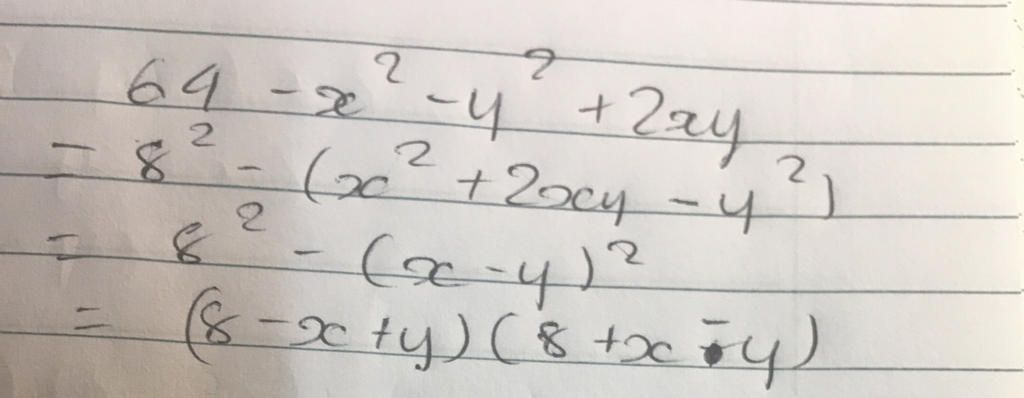 64 - x² - y² + 2xy
= 8² - (x² + 2xy - y²)
= 8² - (x - y)²
= (8 - x + y) (8 + x - y)